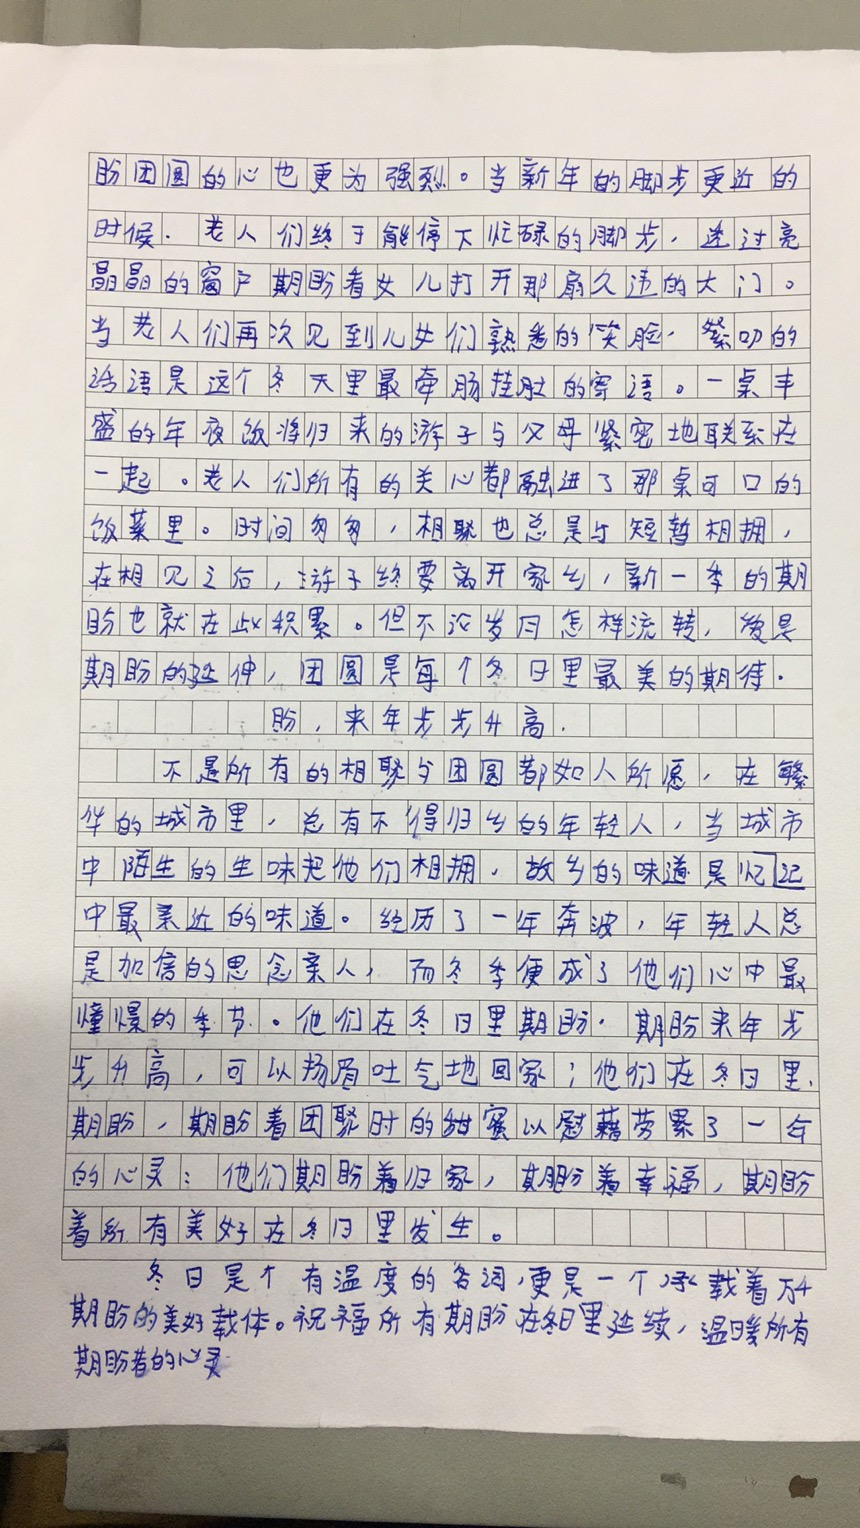 盼团圆的心也更为强烈。当新年的脚步更近的
时候.老人们终于能停下忙碌的脚步，透过亮
晶晶的窗户期盼着女儿打开那扇久违的大门。
当老人们再次见到儿女们熟悉的笑脸，絮叨的
话语是这个冬天里最牵肠挂肚的寄语。一桌丰
盛的年夜饭将归来的游子与父母紧密地联系在
一起。老人们所有的关心都融进了那桌可口的
饭菜里。时间匆匆，相聚也总是与短暂相拥，
在相见之后，游子终要离开家乡，新一季的期
盼也就在此积累。但不论岁月怎样流转，爱是
期盼的延伸，团圆是每个冬日里最美的期待.
盼，来年步步升高.
不是所有的相聚与团圆都如人所愿，在繁
华的城市里，总有不得归乡的年轻人，当城市
中陌生的生味把他们相拥，故乡的味道是忆记
中最亲近的味道。经历了一年奔波，年轻人总
是加倍的思念亲人，而冬季便成了他们心中最
憧憬的季节。他们在冬日里期盼.期盼来年步
步升高，可以扬眉吐气地回家；他们在冬日里
期盼，期盼着团聚时的甜蜜以慰藉劳累了一年
的心灵；他们期盼着归家，期盼着幸福，期盼
着所有美好在冬日里发生。
冬日是个有温度的名词，更是一个承载着万千
期盼的美好载体。祝福所有期盼在冬日里延续，温暖所有
期盼者的心灵